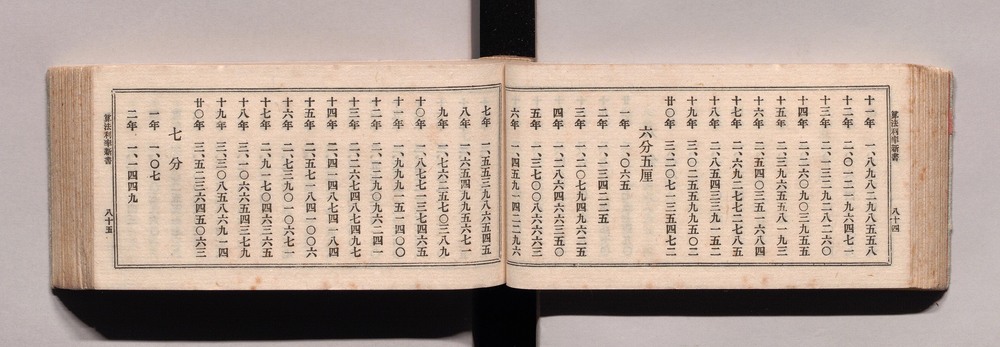 算法利率新書　八十四
十一年　一、八九八二九八五五八
十二年　二、〇一二一九六四七一
十三年　二、一三二九二八二六〇
十四年　二、二六〇九〇三九五五
十五年　二、三九六五五八一九三
十六年　二、五四〇三五一六八四
十七年　二、六九二七七二七八五
十八年　二、八五四三三九一五二
十九年　三、〇二五五九九五〇二
廿〇年　三、二〇七一三五四七二
六分五厘
一年　一、〇六五
二年　一、一三四二二五
三年　一、二〇七九四九六二五
四年　一、二八六四六六三五〇
五年　一、三七〇〇八六六六三
六年　一、四五九一四二二九六
七年　一、五五三九八六五四五
八年　一、六五四九九五六七一
九年　一、七六二五七〇三八九
十〇年　一、八七七一三七四六五
十一年　一、九九九一五一四〇〇
十二年　二、一二九〇九六二四一
十三年　二、二六七四八七四九七
十四年　二、四一四八七四一八四
十五年　二、五七一八四一〇〇六
十六年　二、七三九〇一〇六七一
十七年　二、九一七〇四六三六五
十八年　三、一〇六六五四三七九
十九年　三、三〇八五八六九一四
廿〇年　三、五二三六四五〇六三
七分
一年　一、〇七
二年　一、一四四九
算法利率新書　八十五